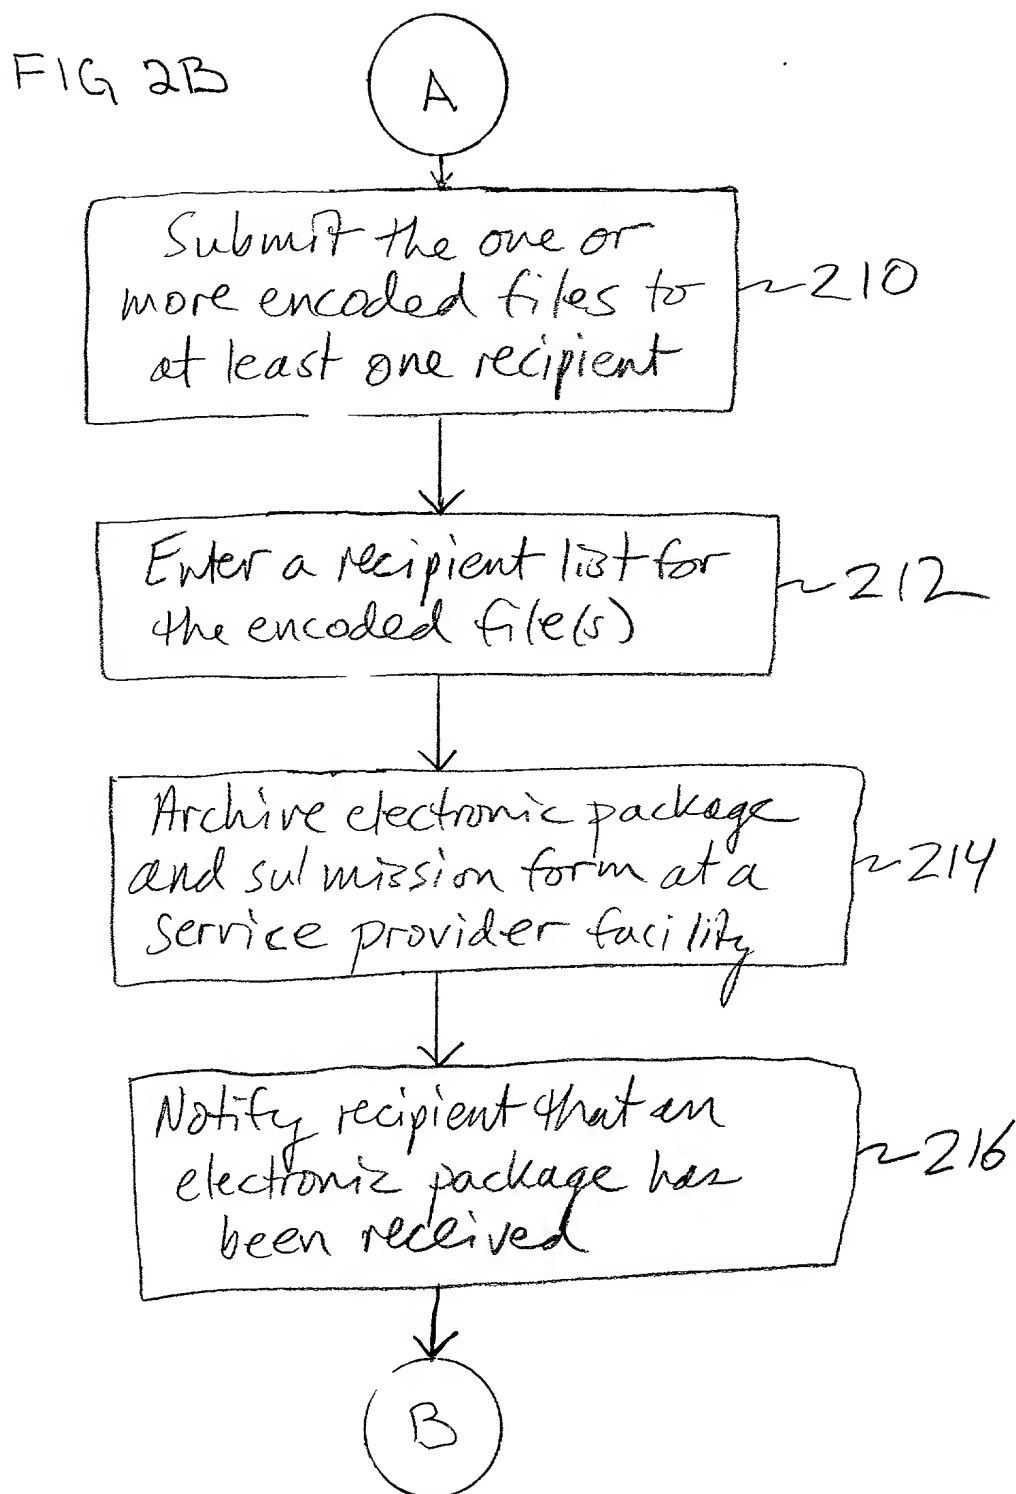 FIG 2B
A
Submit the one or
more encoded files to
at least one recipient
210
Enter a recipient list for
the encoded file(s)
212
Archive electronic package
and submission form at a
service provider facility
214
Notify recipient that an
electronic package has
been received
216
B